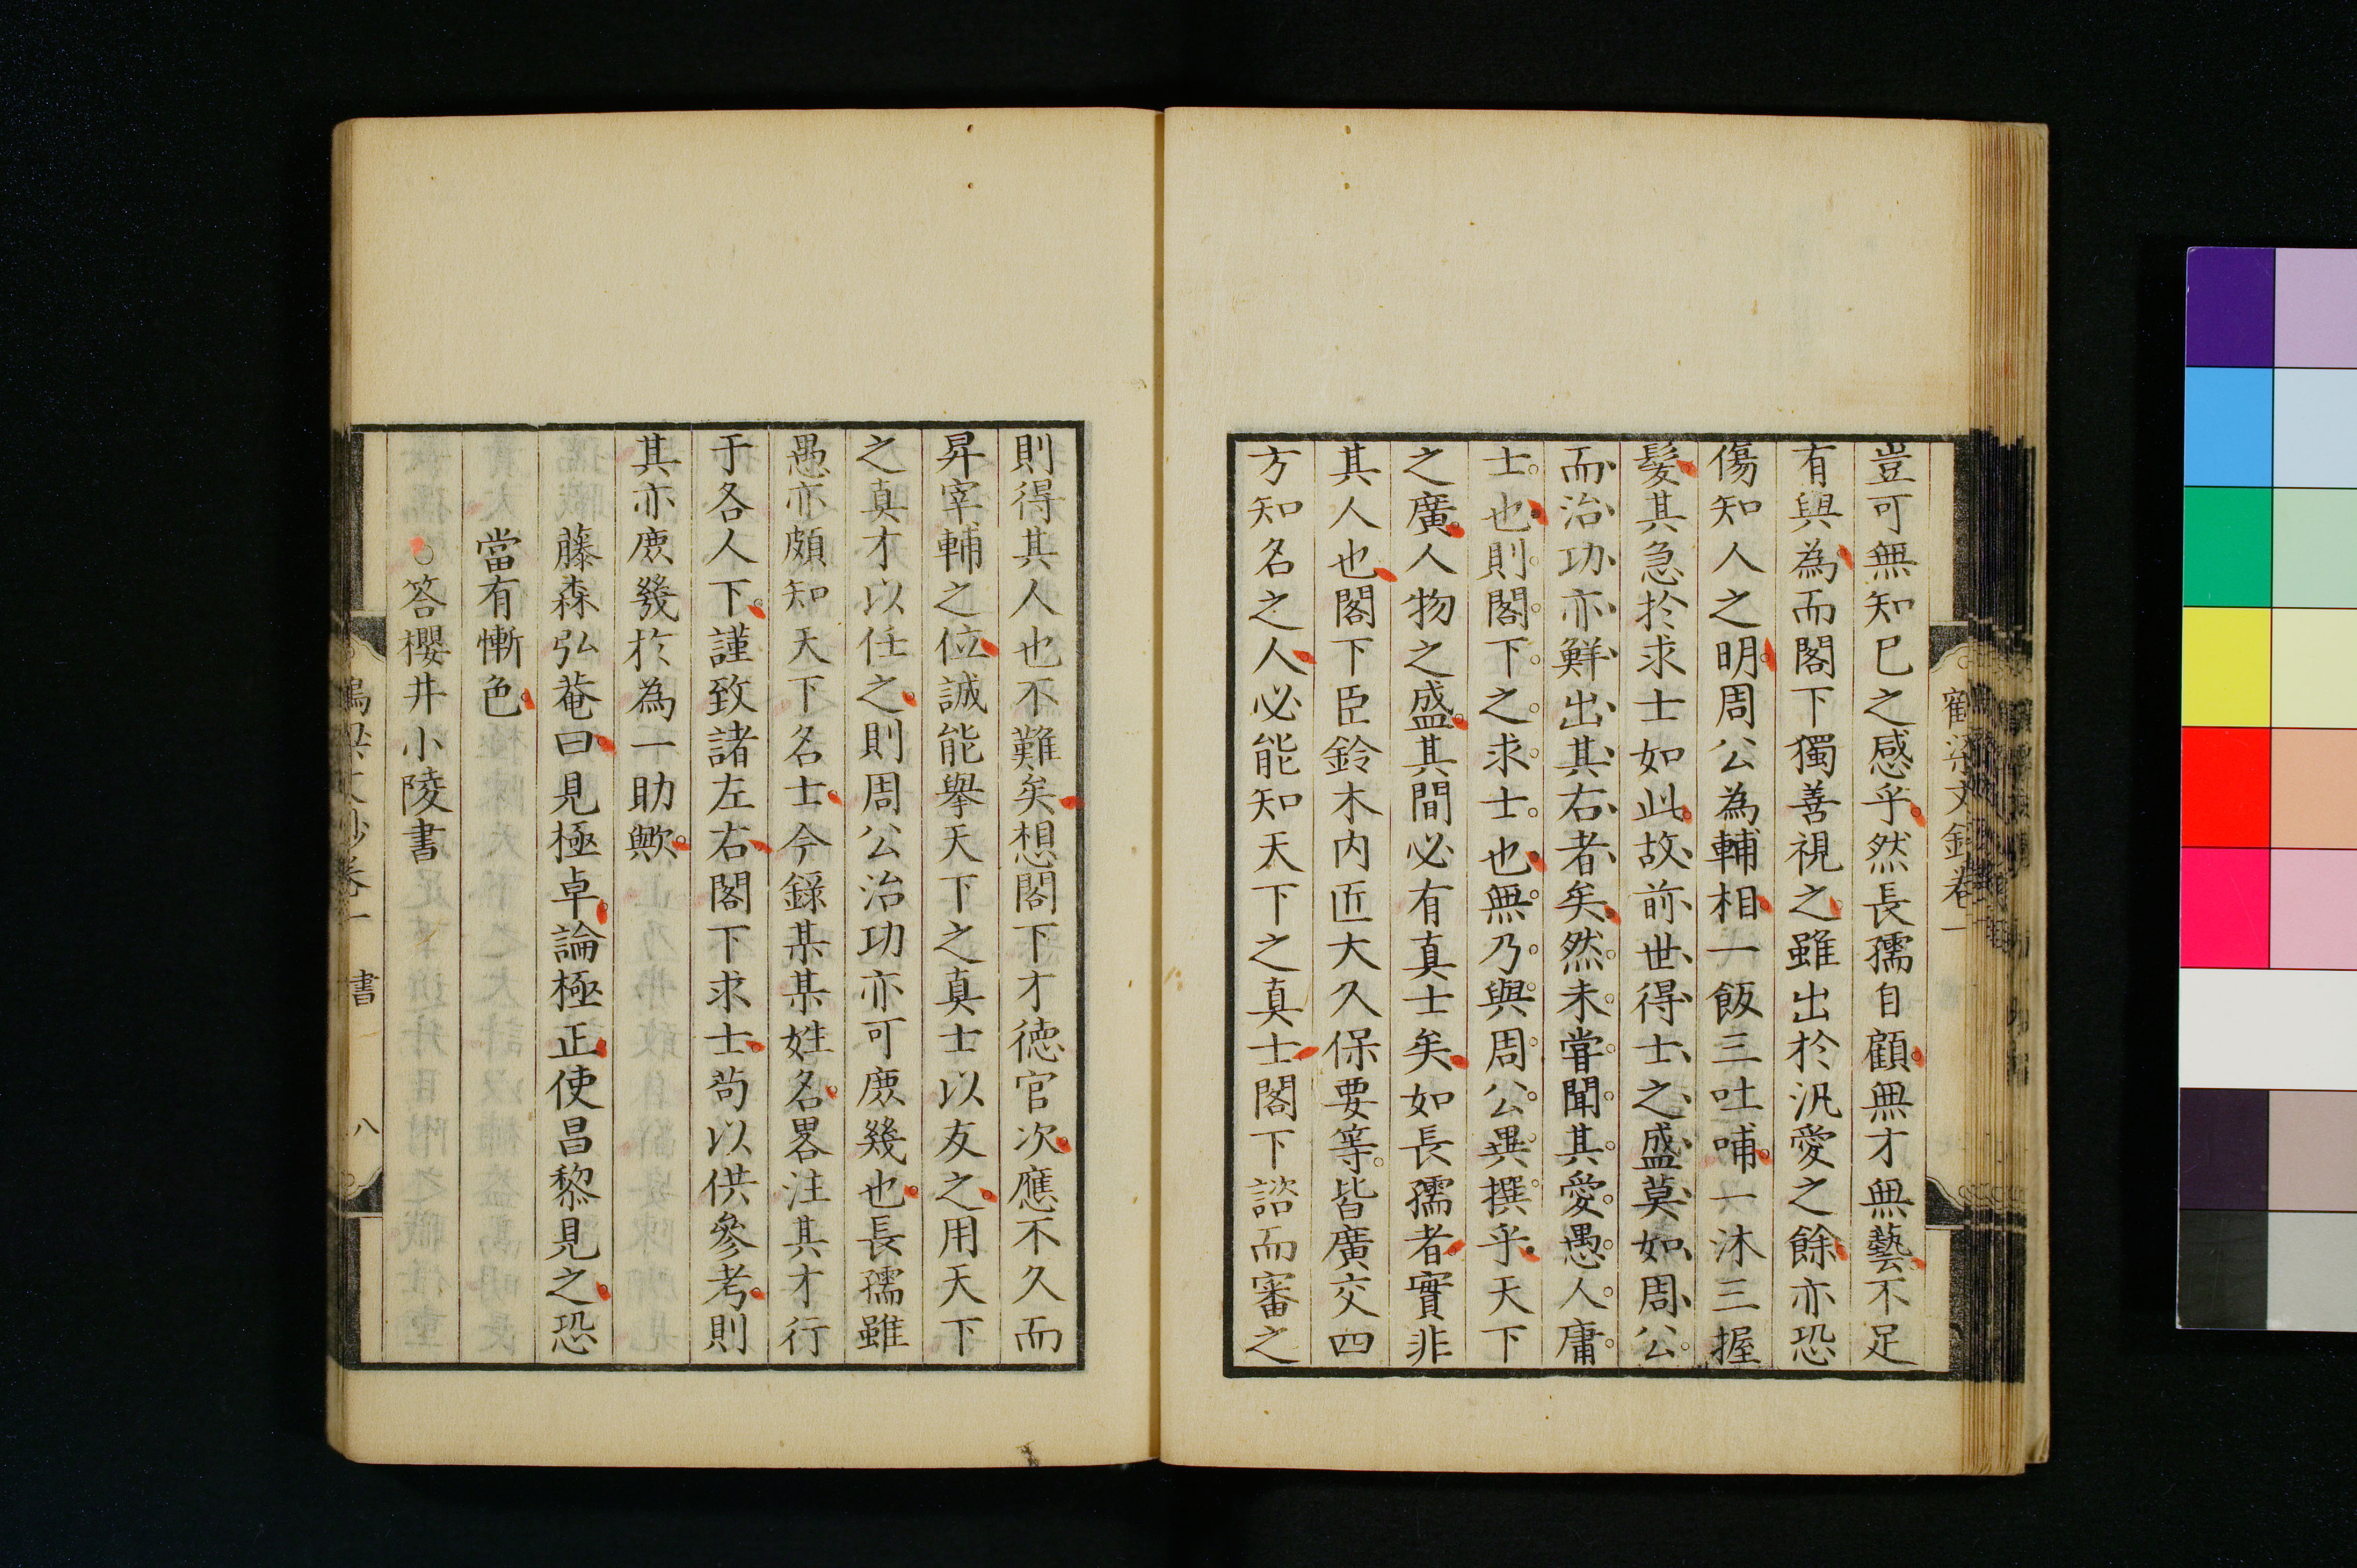 豈可無知巳之感乎然長孺自顧無才無藝不足
有與為而閣下獨善視之雖出於汎愛之餘亦恐
傷知人之明周公為輔相一飯三吐哺一沐三握
髮其急於求士如此故前世得士之盛莫如周公
而治功亦鮮出其右者矣然未甞聞其愛愚人庸
士也則閣下之求士也無乃與周公異撰乎天下
之廣人物之盛其間必有真士矣如長孺者實非
其人也閣下臣鈴木内匠大久保要等皆廣交四
方知名之人必能知天下之真士閣下諮而審之
則得其人也不難矣想閣下才徳官次應不久而
昇宰輔之位誠能擧天下之真士以友之用天下
之真才以任之則周公治功亦可庶幾也長孺雖
愚亦頗知天下名士今錄某某姓名畧注其才行
于各人下謹致諸左右閣下求士苟以供參考則
其亦庶幾於為一助歟
藤森弘菴曰見極卓論極正使昌黎見之恐
當有慚色
○答櫻井小陵書
梁文鈔卷一 書 八